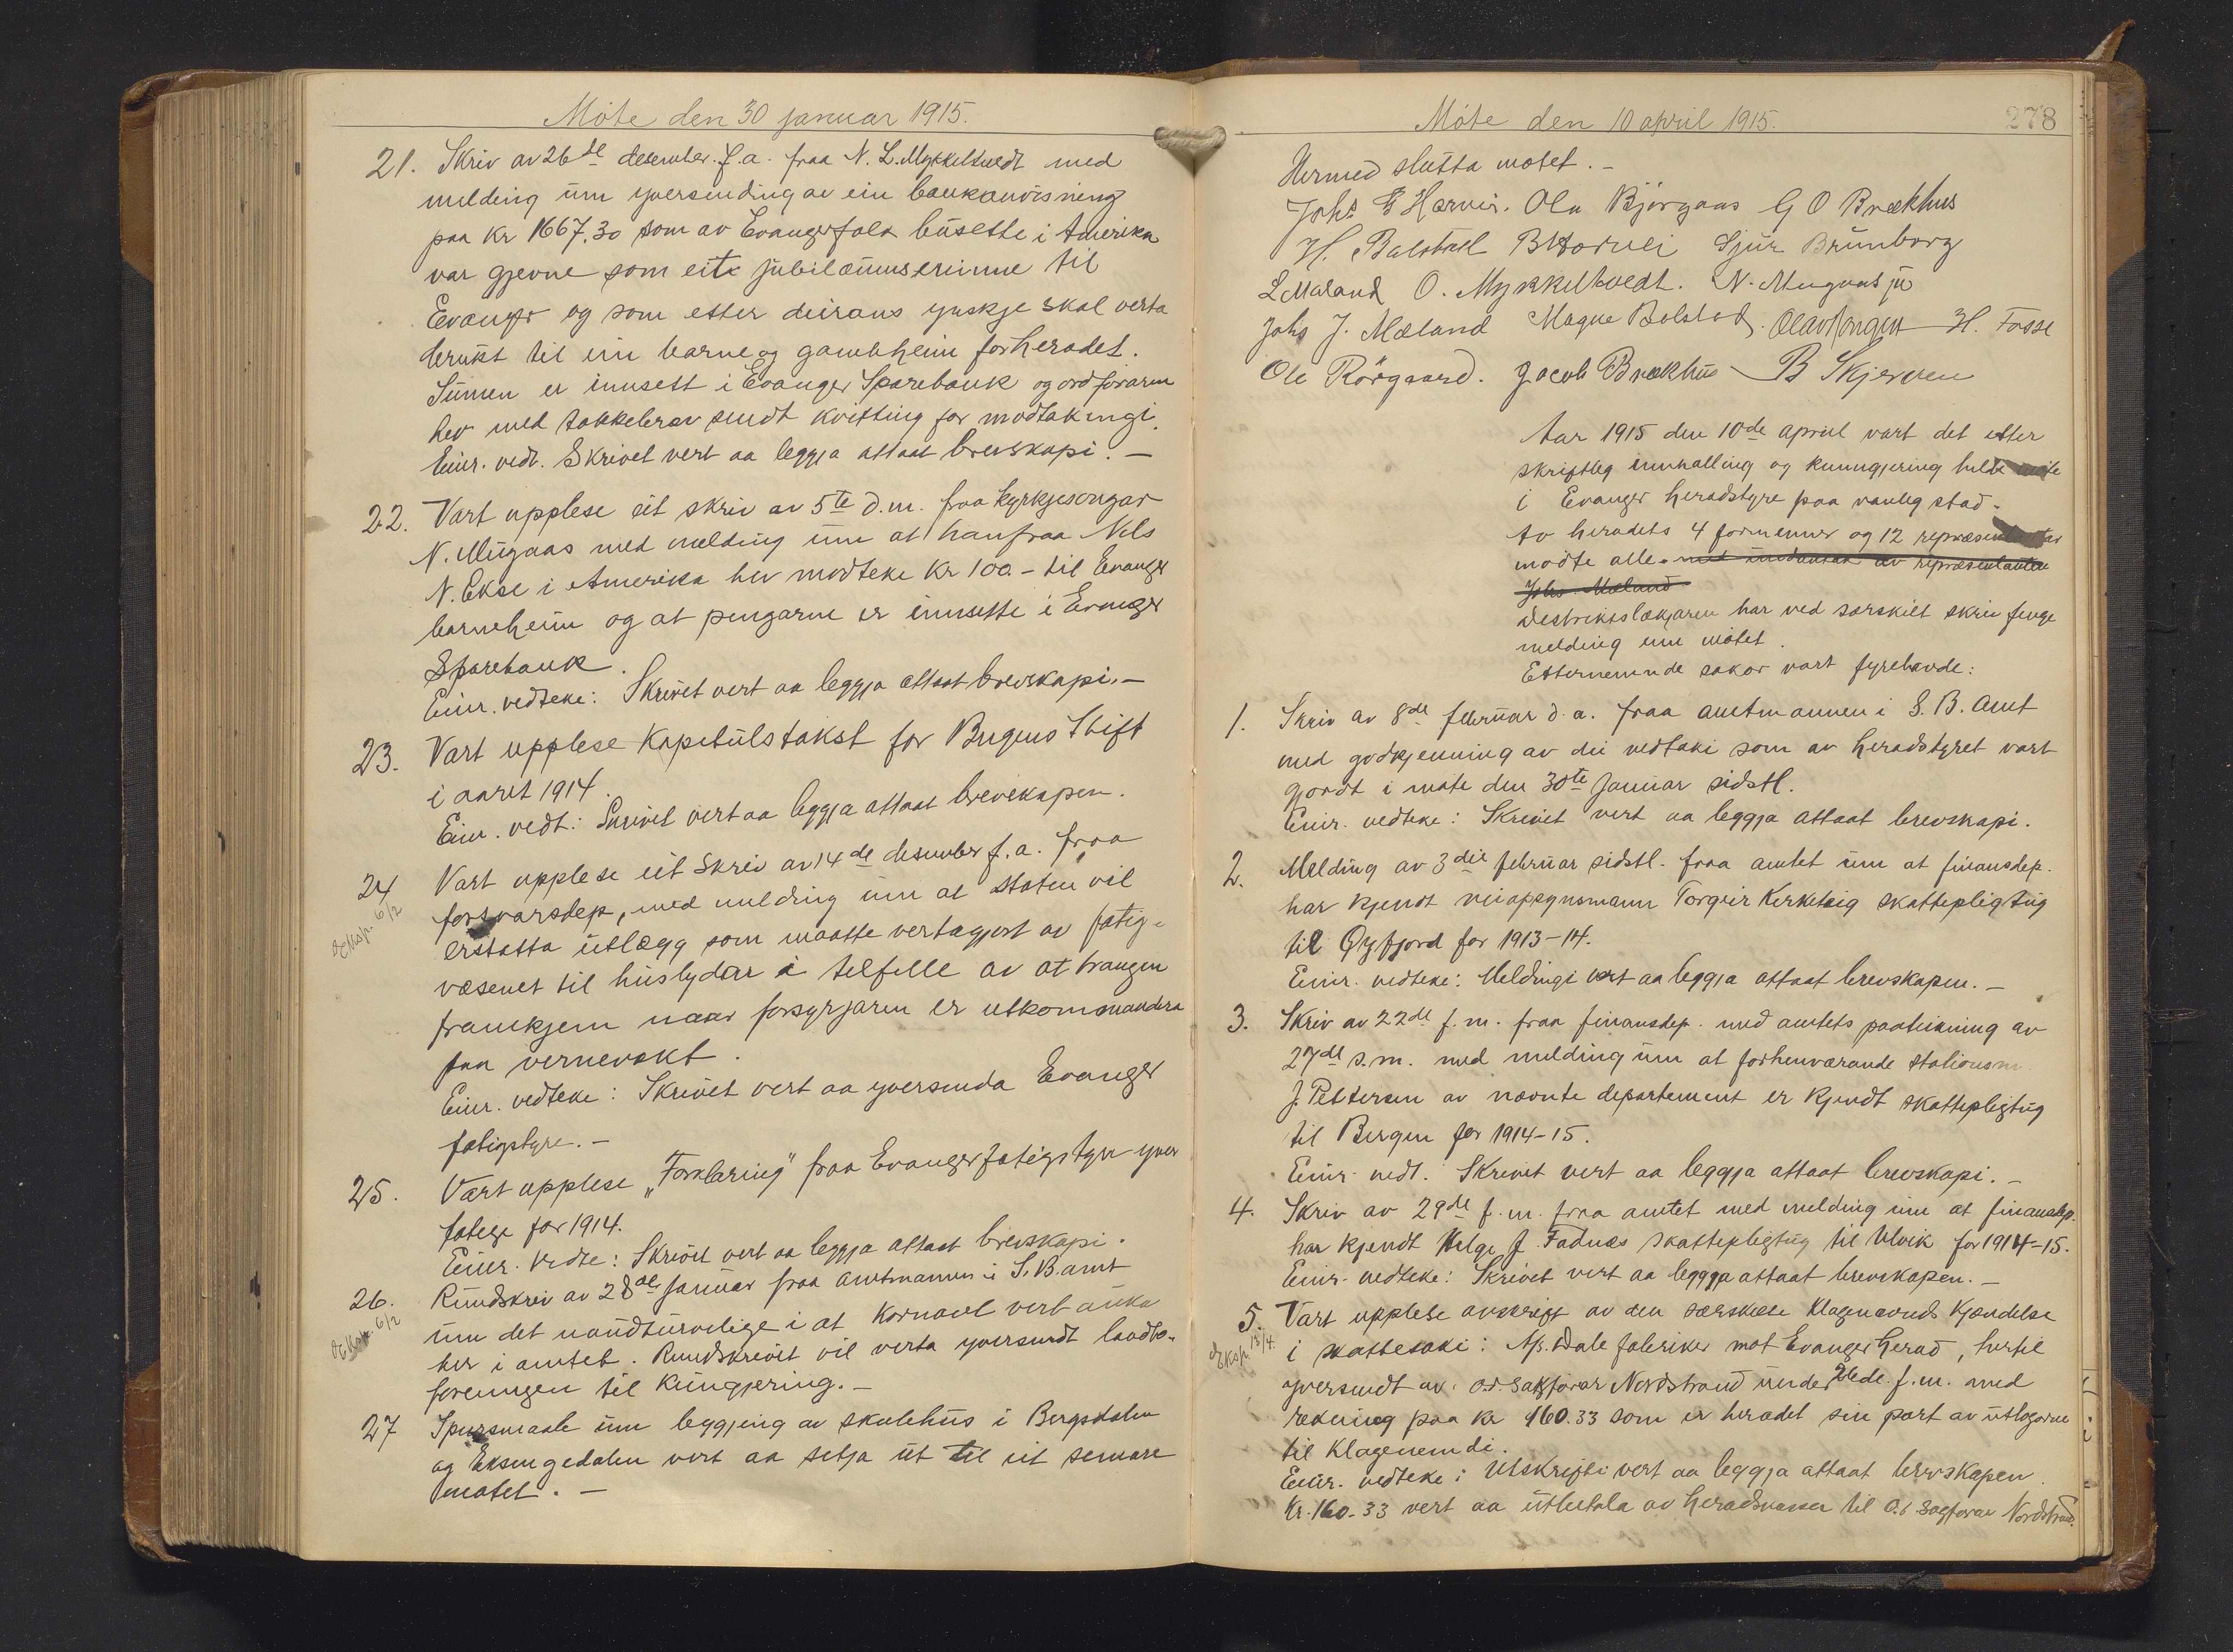 Möte den 30 januar 1915.
21. Skriv av 26de desember f.a. fraa N. L. Mykkeltvedt med
melding um yversending av ein bankanvisning
paa kr 1667.30 som av Evangerfolk busette i Amerika
var gjevne som eit jubilæumsminne til
Evanger og som etter deirans ynskje skal verta
brukt til ein barne og gamleheim for heradet.
Sumen er innsett i Evanger Sparebank og ordföraren
hev med takkebrev sendt kvitting for modtakingi.
Einr. vedt. Skrivet vert aa leggja attaat brevskapi. –
22. Vart upplese eit skriv av 5te d.m. fraa kyrkjesongar
N. Mugaas med melding um at han fraa Nils
N. Ekse i Amerika hev modteke Kr 100.- til Evanger
barneheim og at pengarne er innsette i Evanger
Sparebank.
Einr. vedteke: Skrivet vert aa leggja attaat brevskapi. –
23. Vart upplese Kapitulstakst for Bergens Stift
i aaret 1914.
Einr. vedt: Skrivet vert aa leggja attaat brevskapen.
24 Vart upplese eit Skriv av 14de desember f.a. fraa
Eksp. 6/2
forsvarsdep, med melding um at staten vil
erstatta utlegg som maatte verta gjort av fatig-
væsenet til huslydar i telfelle av at trangen
framkjem naar forsyrgjaren er utkommandera
paa vernevakt.
Einr. vedteke: Skrivet vert aa yversenda Evanger
fatigstyre. –
25. Vart upplese „Forklaring" fraa Evanger fatigstyre yver
fatige for 1914.
Einr. vedte: Skrivet vert aa leggja attaat brevskapi.
26. Rundskriv av 28de januar fraa amtmannen i S. B. amt
Eksp. 6/2
um det naudturvelige i at kornavl vert auka
her i amtet. Rundskrivet vil verta yversendt landbo-
foreningen til kungjering. –
27 Spursmaale um byggjing av skulehus i Bergsdalen
og Eksingedalen vert aa setja ut til eit senare
möte. –
Möte den 10 april 1915.
278
Hermed slutta mötet. –
Johs E Horvei. Ola Björgaas G O Brækhus
H. Bolstad B Horvei Sjur Brunborg
L Mæland O. Mykkeltvedt. N. Mugaas jr
Johs J. Mæland Magne Bolstad. Olav Vangen H. Fosse
Ole Rörgaard. Jacob Brækhus B Skjerven
Aar 1915 den 10de april vart det etter
skriftleg innkalling og kunngjering halde möte
i Evanger heradstyre paa vanleg stad.
Av heradets 4 formenner og 12 repræsentantar
mödte alle. med undantak av repræsentanten
Johs Mæland
Destriktslækjaren har ved særskilt skriv fenge
melding um mötet.
Etternemnde sakar vart fyrehavde:
1. Skriv av 8de februar d.a. fraa amtmannen i S. B. Amt
med godkjenning av dei vedtaki som av heradstyret vart
gjordt i möte den 30te januar sidstl.
Einr. vedteke: Skrivet vert aa leggja attaat brevskapi.
2. Melding av 3die februar sidstl. fraa amtet um at finansdep.
har kjendt veiopsynsmann Torgeir Kirketeig skattepligtug
til Öyfjord for 1913-14.
Einr. vedteke: Meldingi vert aa leggja attaat brevskapen. –
3. Skriv av 22de f.m. fraa finansdep. med amtets paateikning av
27de s.m. med melding um at forhenværande stationsm
J. Pettersen av nævnte departement er kjendt skattepligtug
til Bergen for 1914-15.
Einr. vedt: Skrivet vert aa leggja attaat brevskapi. –
4. Skriv av 29de f.m. fraa amtet med melding um at finansdep.
har kjendt Helge J. Fadnæs skattepligtug til Ulvik for 1914-15.
Einr. vedteke: Skrivet vert aa leggja attaat brevskapen. –
5. Vart upplese avskrift av den særskilte Klagenævnds Kjændelse
Eksp. 13/4.
i skattesaki: A/s. Dale fabriker mot Evanger herad, hertil
yversendt av o.r. sakförar Nordstrand under 26de f.m. med
rekning paa kr 160.33 som er heradet sin part av utlogorne
til Klagenemdi.
Einr. vedteke: Utskrifti vert aa leggja attaat brevskapen.
Kr. 160.33 vert aa utbetala av heradskassa til O.r. sagförar Nordstrand.